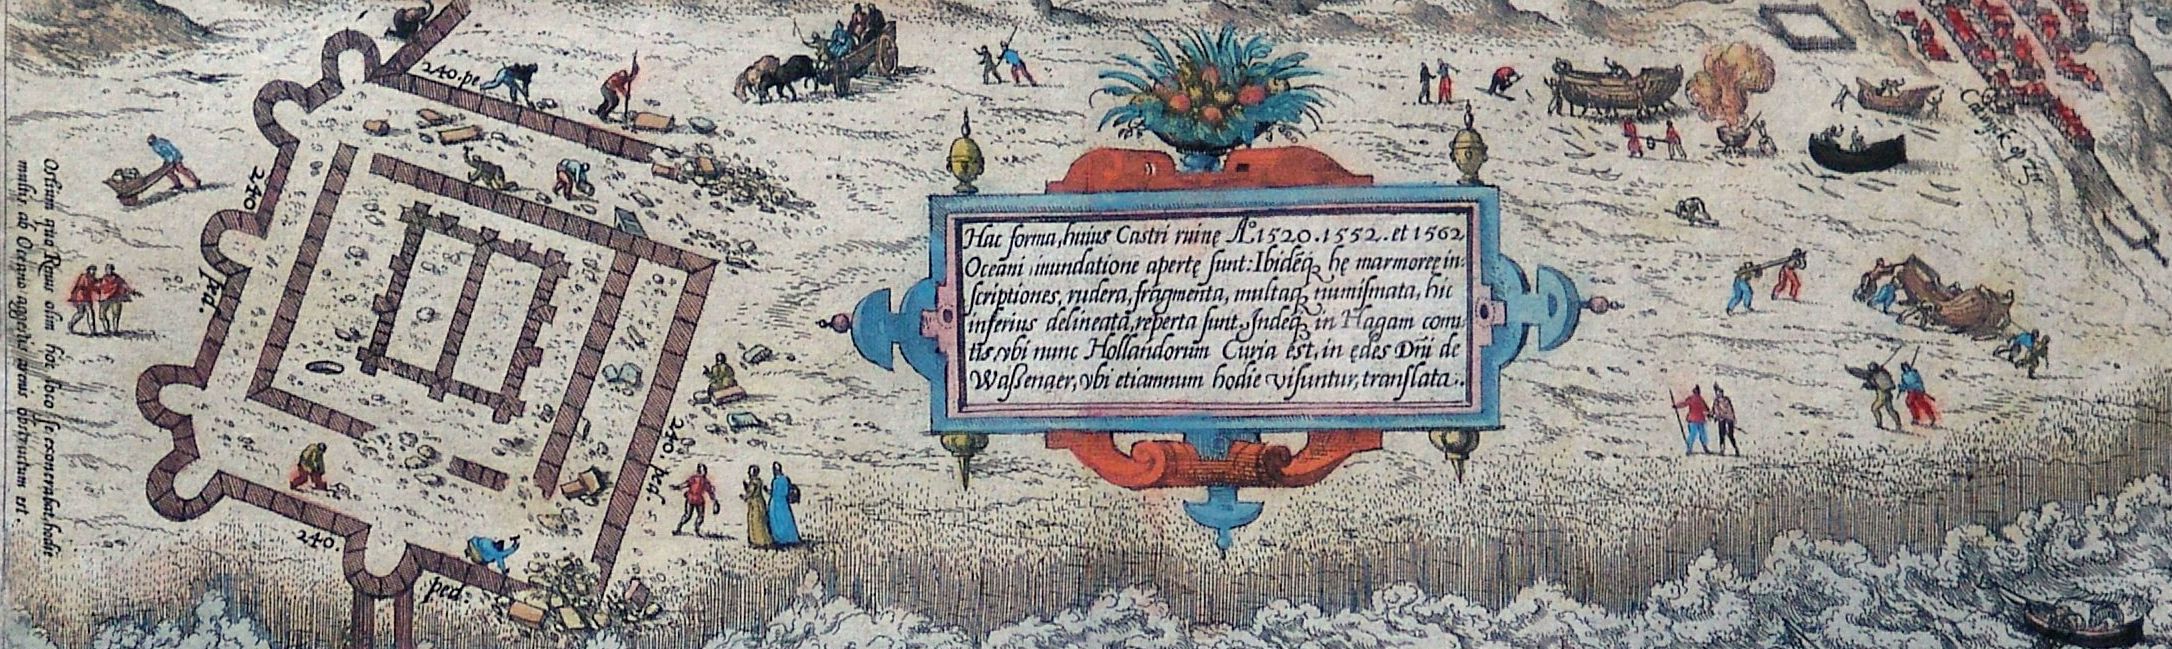 Hac forma, huius Castri ruinę A.º 1520. 1552. et 1562
Oceani inundatione apertę sunt: Ibidēq₃ hę marmoreę in-
scriptiones, rudera, fragmenta, multaq₃ numismata, hic
inferius delineata, reperta sunt. Indeq₃ in Hagam comi-
tis, vbi nunc Hollandorum Curia est, in ędes Dn̄i de
Waßenaer, vbi etiamnum hodie visuntur, translata..
Ostium quo Renus olim hoc loco se exonerabat, hodie
multis ab Oceano aggestis arenis obstructum est.
240. pe
240
ped.
240.
ped.
240 ped.
Catwijk op Zee